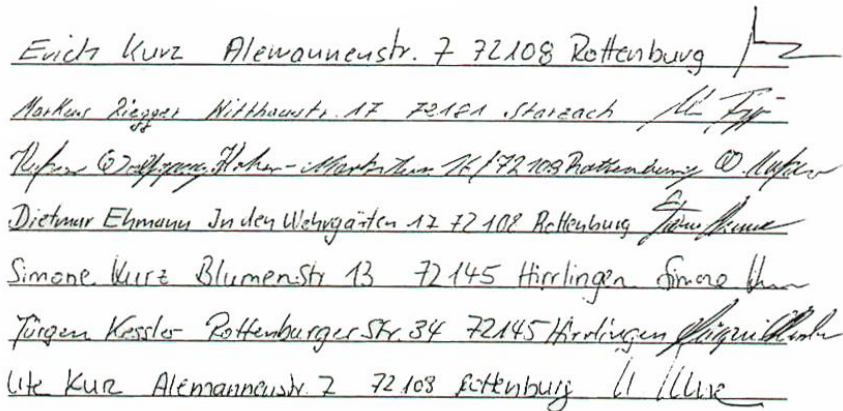 Erich Kurz Alemannenstr. 7 72108 Rottenburg
Markus Riegger Witthaustr. 17 72181 Starzach
Wolfgang 72108 Rottenburg W.
Dietmar Ehmann In den Wehrgärten 17 72108 Rottenburg
Simone Kurz Blumenstr 13 72145 Hirrlingen Simone
Jürgen Kessler Rottenburger Str. 34 72145 Hirrlingen
Ute Kurz Alemannenstr. 7 72108 Rottenburg